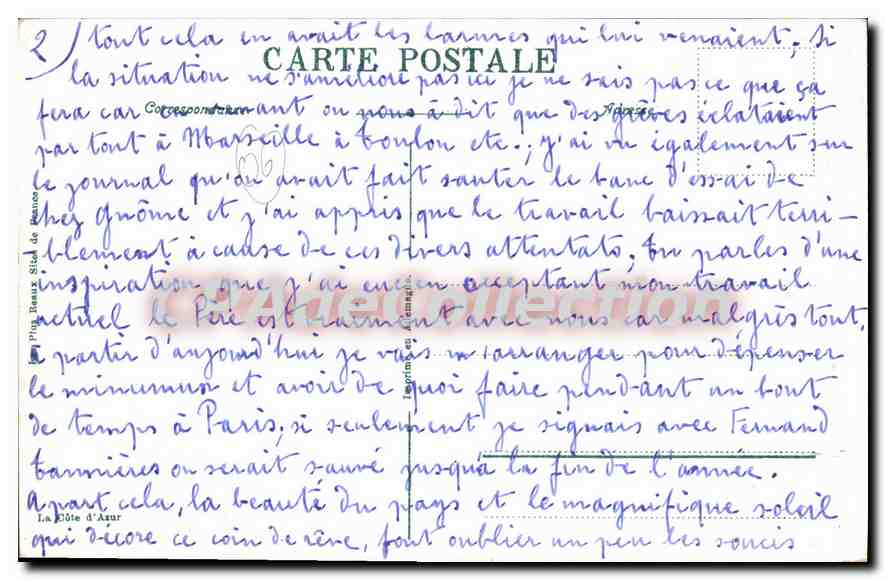 2) tout cela en avait les larmes qui lui venaient; si
CARTE POSTALE
la situation ne s'améliore pas ici je ne sais pas ce que ça
Correspondance
Adresse
fera car courant on nous à dit que des grèves éclataient
partout à Marseille à Toulon etc.; j'ai vu également sur
06
le journal qu'on avait fait sauter le banc d'essai de
chez Gnôme et j'ai appris que le travail baissait terri-
blement à cause de ces divers attentats; tu parles d'une
inspiration que j'ai eu en acceptant mon travail
CPAdeCollection
actuel le Père est vraiment avec nous car malgrès tout,
à partir d'aujourd'hui je vais m'arranger pour dépenser
le minimum et avoir de quoi faire pendant un bout
de temps à Paris; si seulement je signais avec Fernand
on serait sauvé jusqu'à la fin de l'année.
Apart cela, la beauté du pays et le magnifique soleil
qui décore ce coin de rêve, font oublier un peu les soucis
Les Plus Beaux Sites de France
Imprimé en Allemagne.
La Côte d'Azur